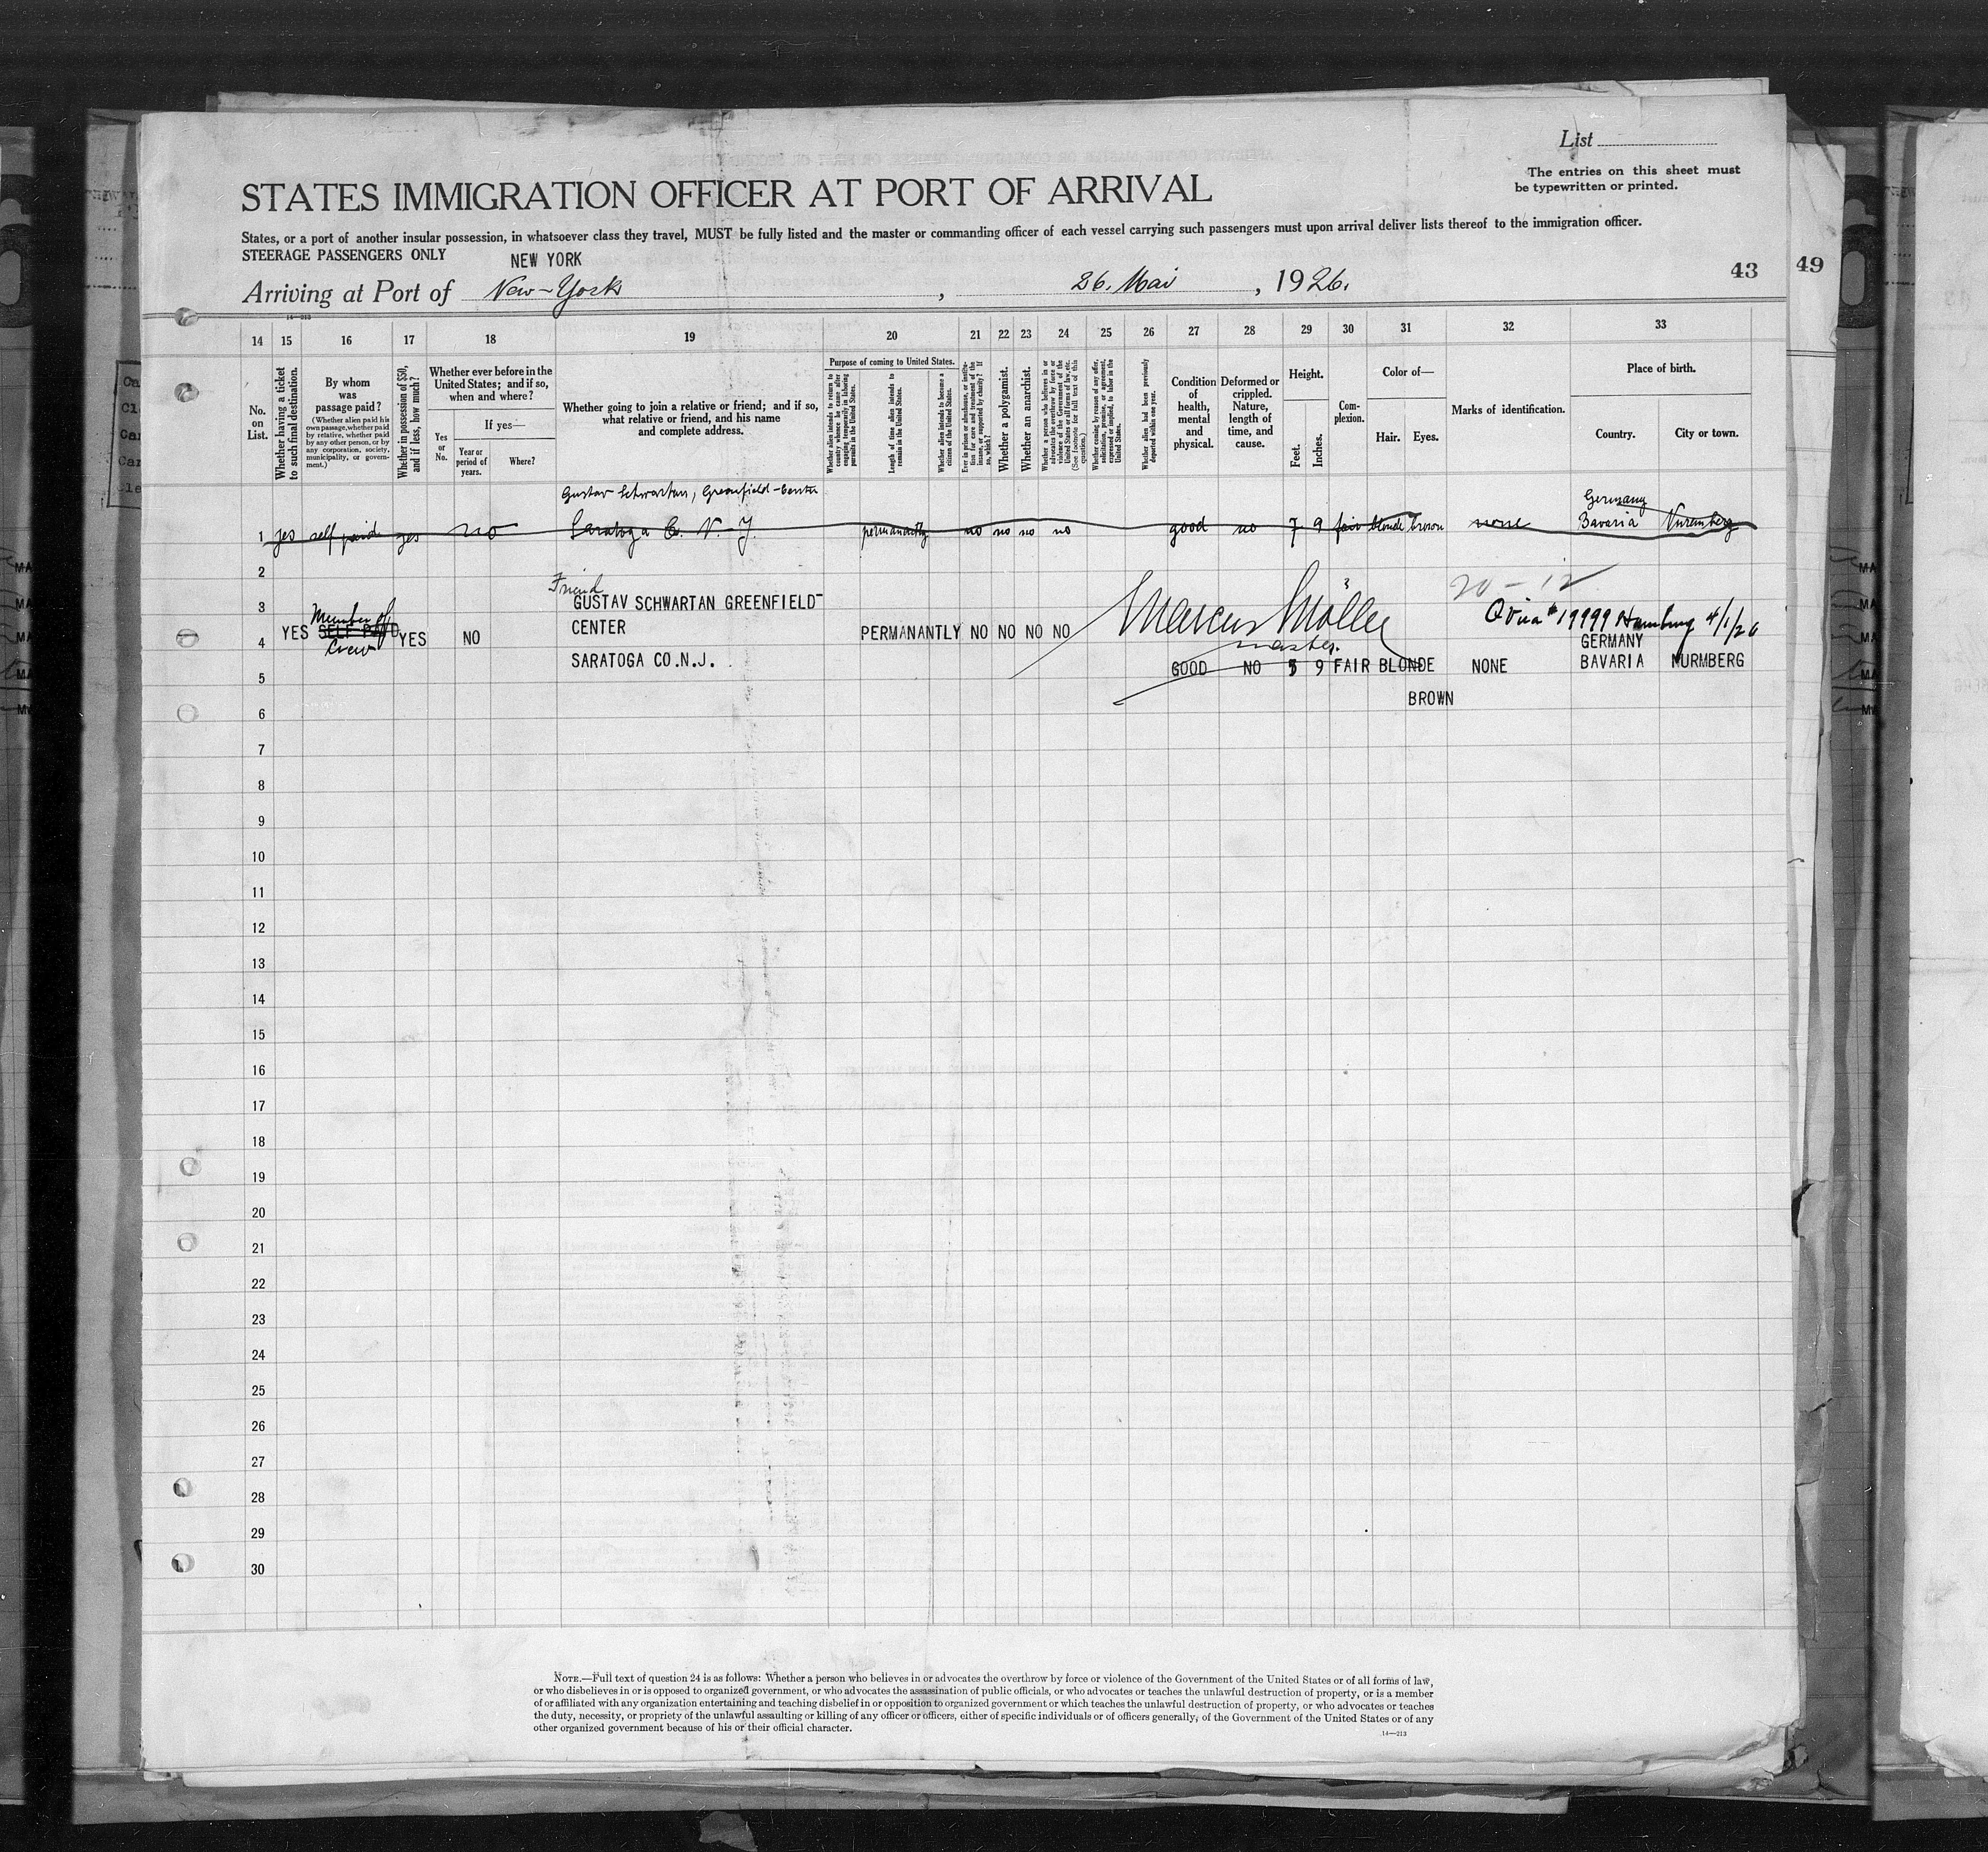 List
The entries on this sheet must
be typewritten or printed.
STATES IMMIGRATION OFFICER AT PORT OF ARRIVAL
States, or a port of another insular possession, in whatsoever class they travel, MUST be fully listed and the master or commanding officer of each vessel carrying such passengers must upon arrival deliver lists thereof to the immigration officer.
STEERAGE PASSENGERS ONLY
NEW YORK
43
49
Arriving at Port of New-York, 26. Mai, 1926.
14—213
14 15 16 17 18 19 20 21 22 23 24 25 26 27 28 29 30 31 32 33
No. on List.
Whether having a ticket to such final destination.
By whom was passage paid?
(Whether alien paid his own passage, whether paid by relative, whether paid by any other person, or by any corporation, society, municipality, or government.)
Whether in possession of $50, and if less, how much?
Whether ever before in the United States; and if so, when and where?
Yes or No.
If yes—
Year or period of years.
Where?
Whether going to join a relative or friend; and if so, what relative or friend, and his name and complete address.
Purpose of coming to United States.
Whether alien intends to return to country whence he came after engaging temporarily in laboring pursuits in the United States.
Length of time alien intends to remain in the United States.
Whether alien intends to become a citizen of the United States.
Ever in prison or almshouse, or institution for care and treatment of the insane, or supported by charity? If so, which?
Whether a polygamist.
Whether an anarchist.
Whether a person who believes in or advocates the overthrow by force or violence of the Government of the United States or all forms of law, etc. (See footnote for full text of this question.)
Whether coming by reason of any offer, solicitation, promise, or agreement, expressed or implied, to labor in the United States.
Whether alien had been previously deported within one year.
Condition of health, mental and physical.
Deformed or crippled. Nature, length of time, and cause.
Height.
Feet.
Inches.
Complexion.
Color of—
Hair.
Eyes.
Marks of identification.
Place of birth.
Country.
City or town.
Gustav Schwartan, Greenfield-Center
Germany
1 yes self paid yes no Saratoga Co. N. J. permanantly no no no no good no 7 9 fair blonde brown none Bavaria Nuremberg
2
20 - 12
Friend
3 GUSTAV SCHWARTAN GREENFIELD-
Marcus Möller
Member of
Q Visa # 19999 Hamburg 4/1/26
4 YES SELF PAID YES NO CENTER PERMANANTLY NO NO NO NO
Crew
master.
GERMANY
SARATOGA CO.N.J.
5 GOOD NO 5 9 FAIR BLONDE NONE BAVARIA NURMBERG
6 BROWN
7
8
9
10
11
12
13
14
15
16
17
18
19
20
21
22
23
24
25
26
27
28
29
30
NOTE.—Full text of question 24 is as follows: Whether a person who believes in or advocates the overthrow by force or violence of the Government of the United States or of all forms of law,
or who disbelieves in or is opposed to organized government, or who advocates the assassination of public officials, or who advocates or teaches the unlawful destruction of property, or is a member
of or affiliated with any organization entertaining and teaching disbelief in or opposition to organized government or which teaches the unlawful destruction of property, or who advocates or teaches
the duty, necessity, or propriety of the unlawful assaulting or killing of any officer or officers, either of specific individuals or of officers generally, of the Government of the United States or of any
other organized government because of his or their official character.
14—213